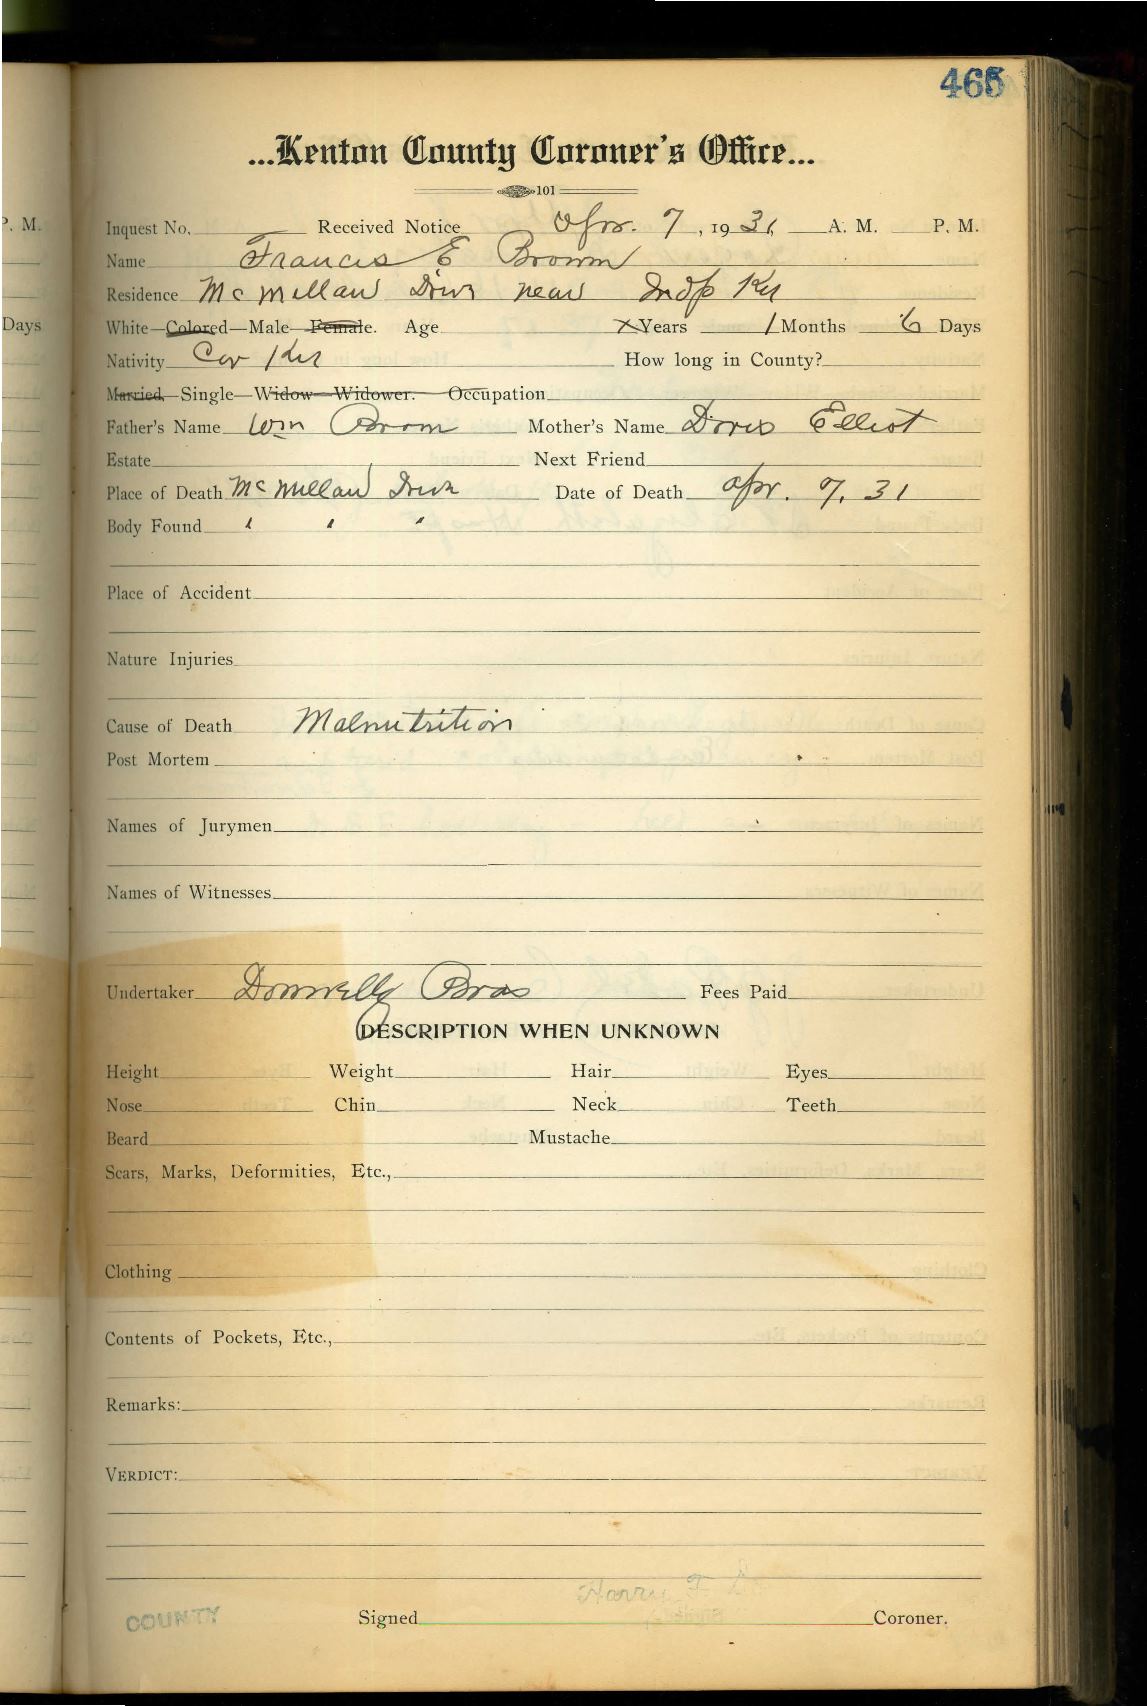 465
...Kenton County Coroner's Office...
101
P. M.
Inquest No. Received Notice Apr. 7, 1931, A. M. P. M.
Name Francis E Brown
Residence McMillan Drive near Indp Ky
Days
White—Colored—Male—Female. Age X Years 1 Months 6 Days
Nativity Cov Ky How long in County?
Married—Single—Widow—Widower. Occupation
Father's Name Wm Brown Mother's Name Doris Elliot
Estate Next Friend
Place of Death McMillan Drive Date of Death Apr. 7, 31
Body Found " " "
Place of Accident
Nature Injuries
Cause of Death Malnutrition
Post Mortem
Names of Jurymen
Names of Witnesses
Undertaker Donnelly Bros Fees Paid
DESCRIPTION WHEN UNKNOWN
Height Weight Hair Eyes
Nose Chin Neck Teeth
Beard Mustache
Scars, Marks, Deformities, Etc.,
Clothing
Contents of Pockets, Etc.,
Remarks:
VERDICT:
Harry F
COUNTY Signed Coroner.